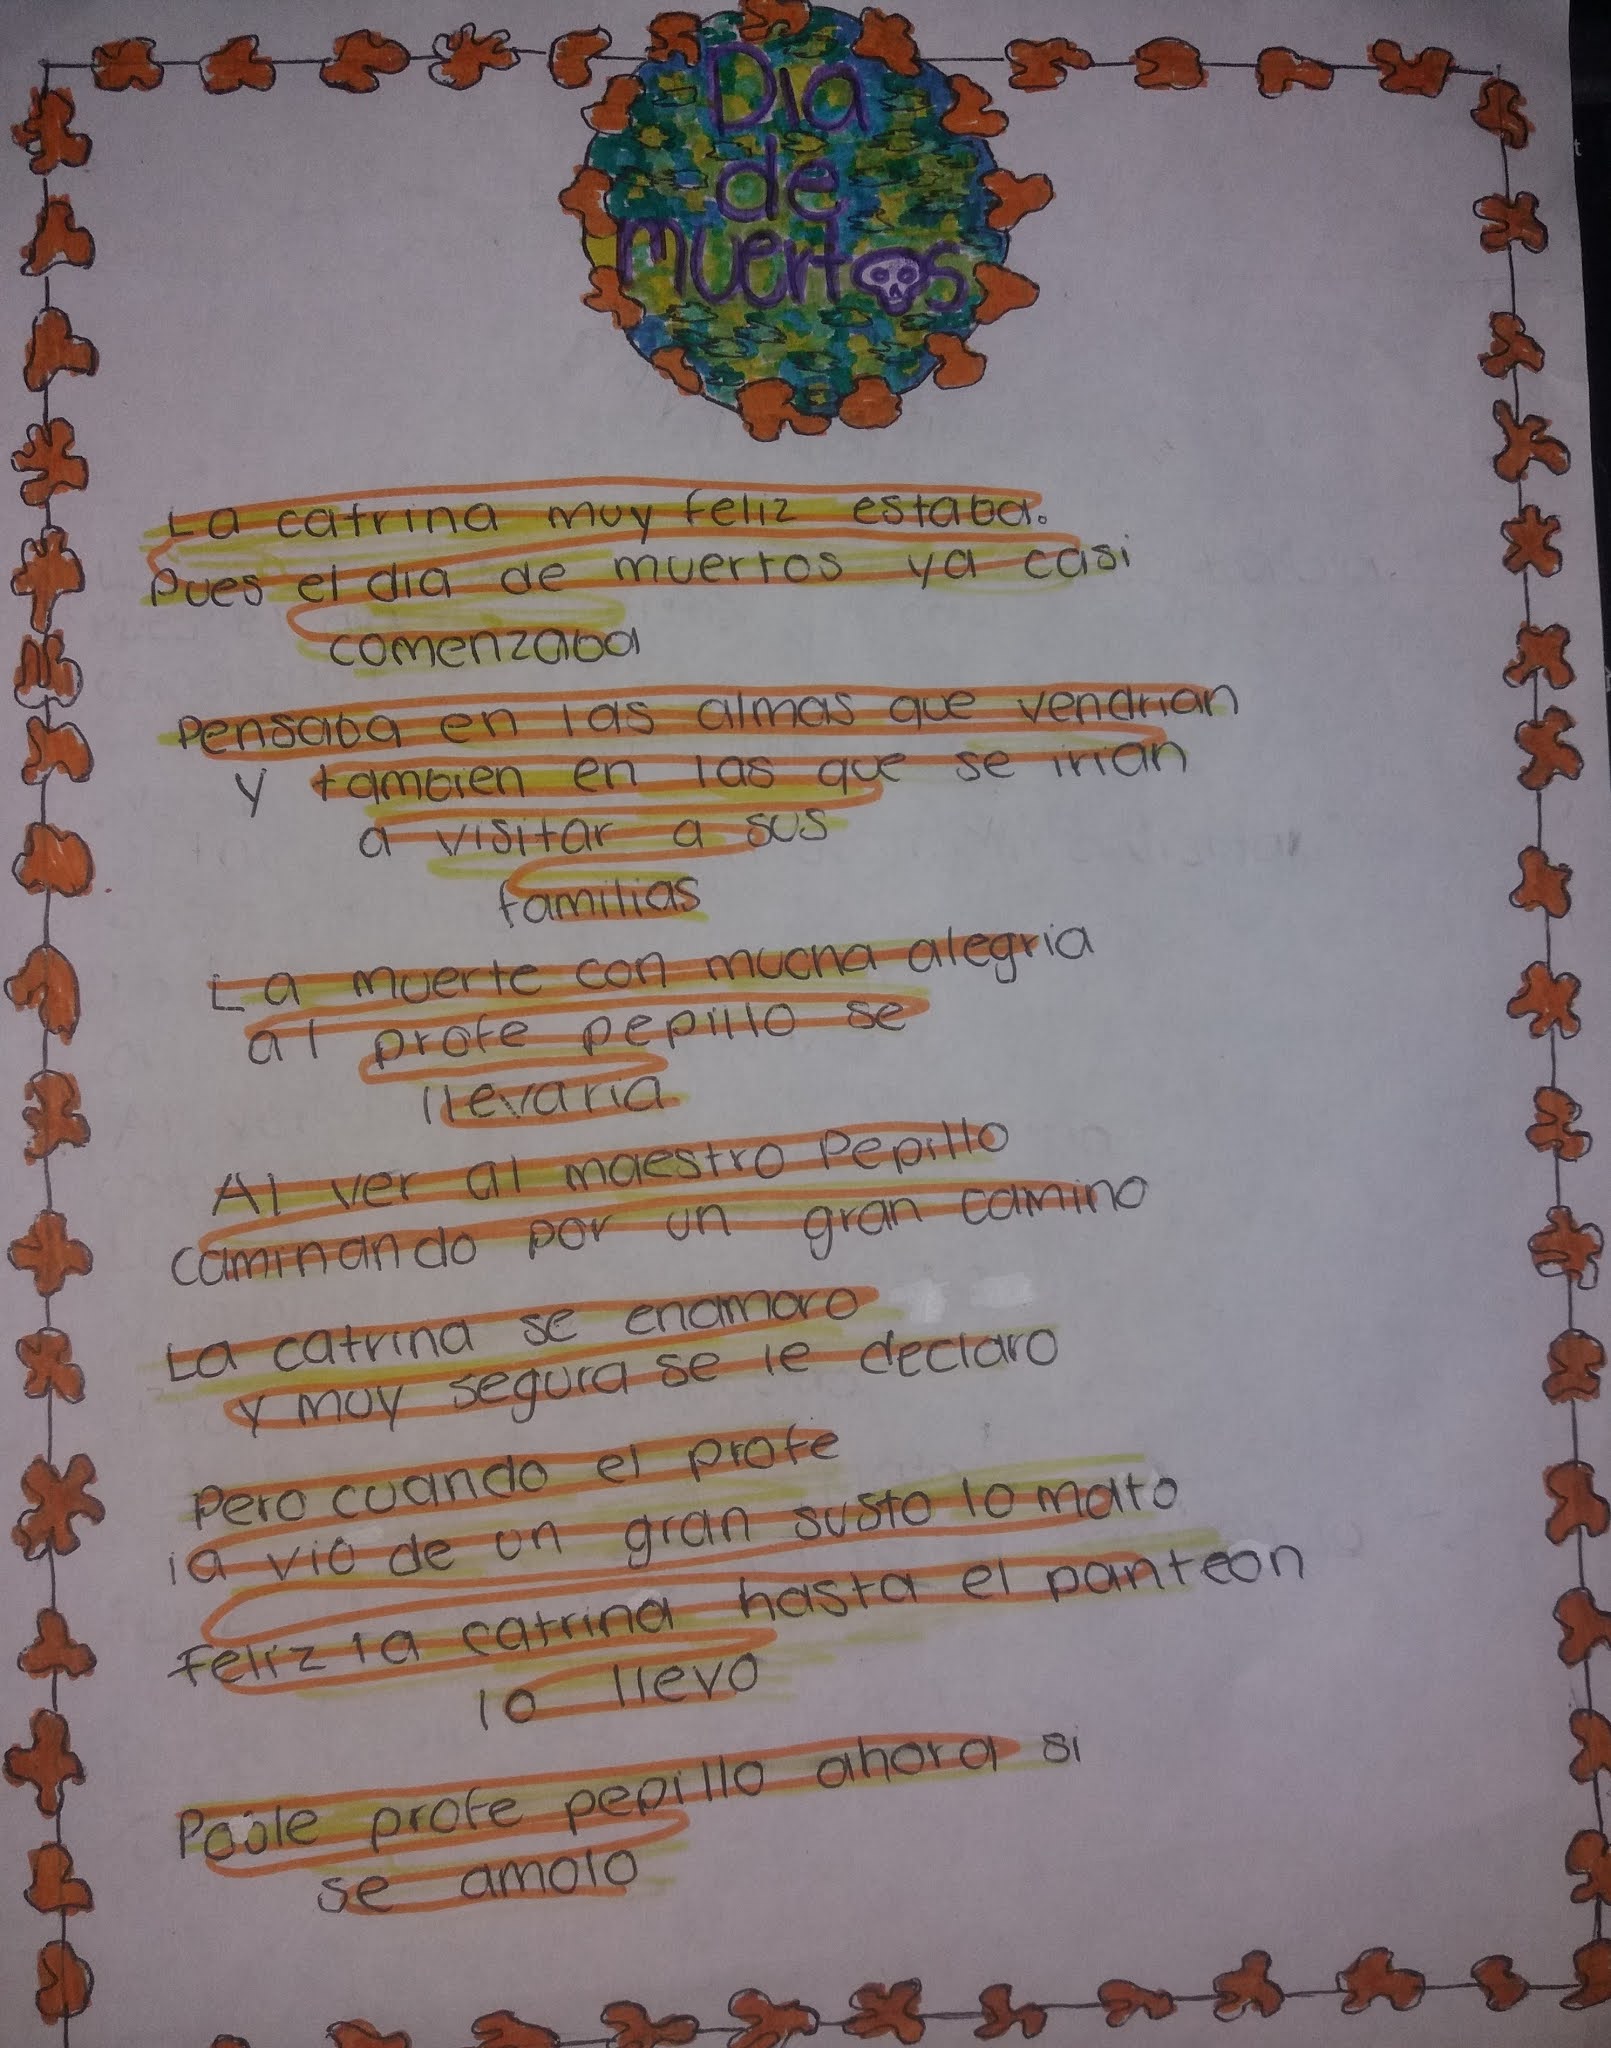 Dia
de
muertos
La catrina muy feliz estaba.
Pues el dia de muertos ya casi
comenzaba
Pensaba en las almas que vendrian
y tambien en las que se irian
a visitar a sus
familias
La muerte con mucha alegria
al profe pepillo se
llevaria
Al ver al maestro Pepillo
caminando por un gran camino
La catrina se enamoro
y muy segura se le declaro
Pero cuando el profe
la vio de un gran susto lo mato
feliz la catrina hasta el panteon
lo llevo
Poble profe pepillo ahora si
se amolo